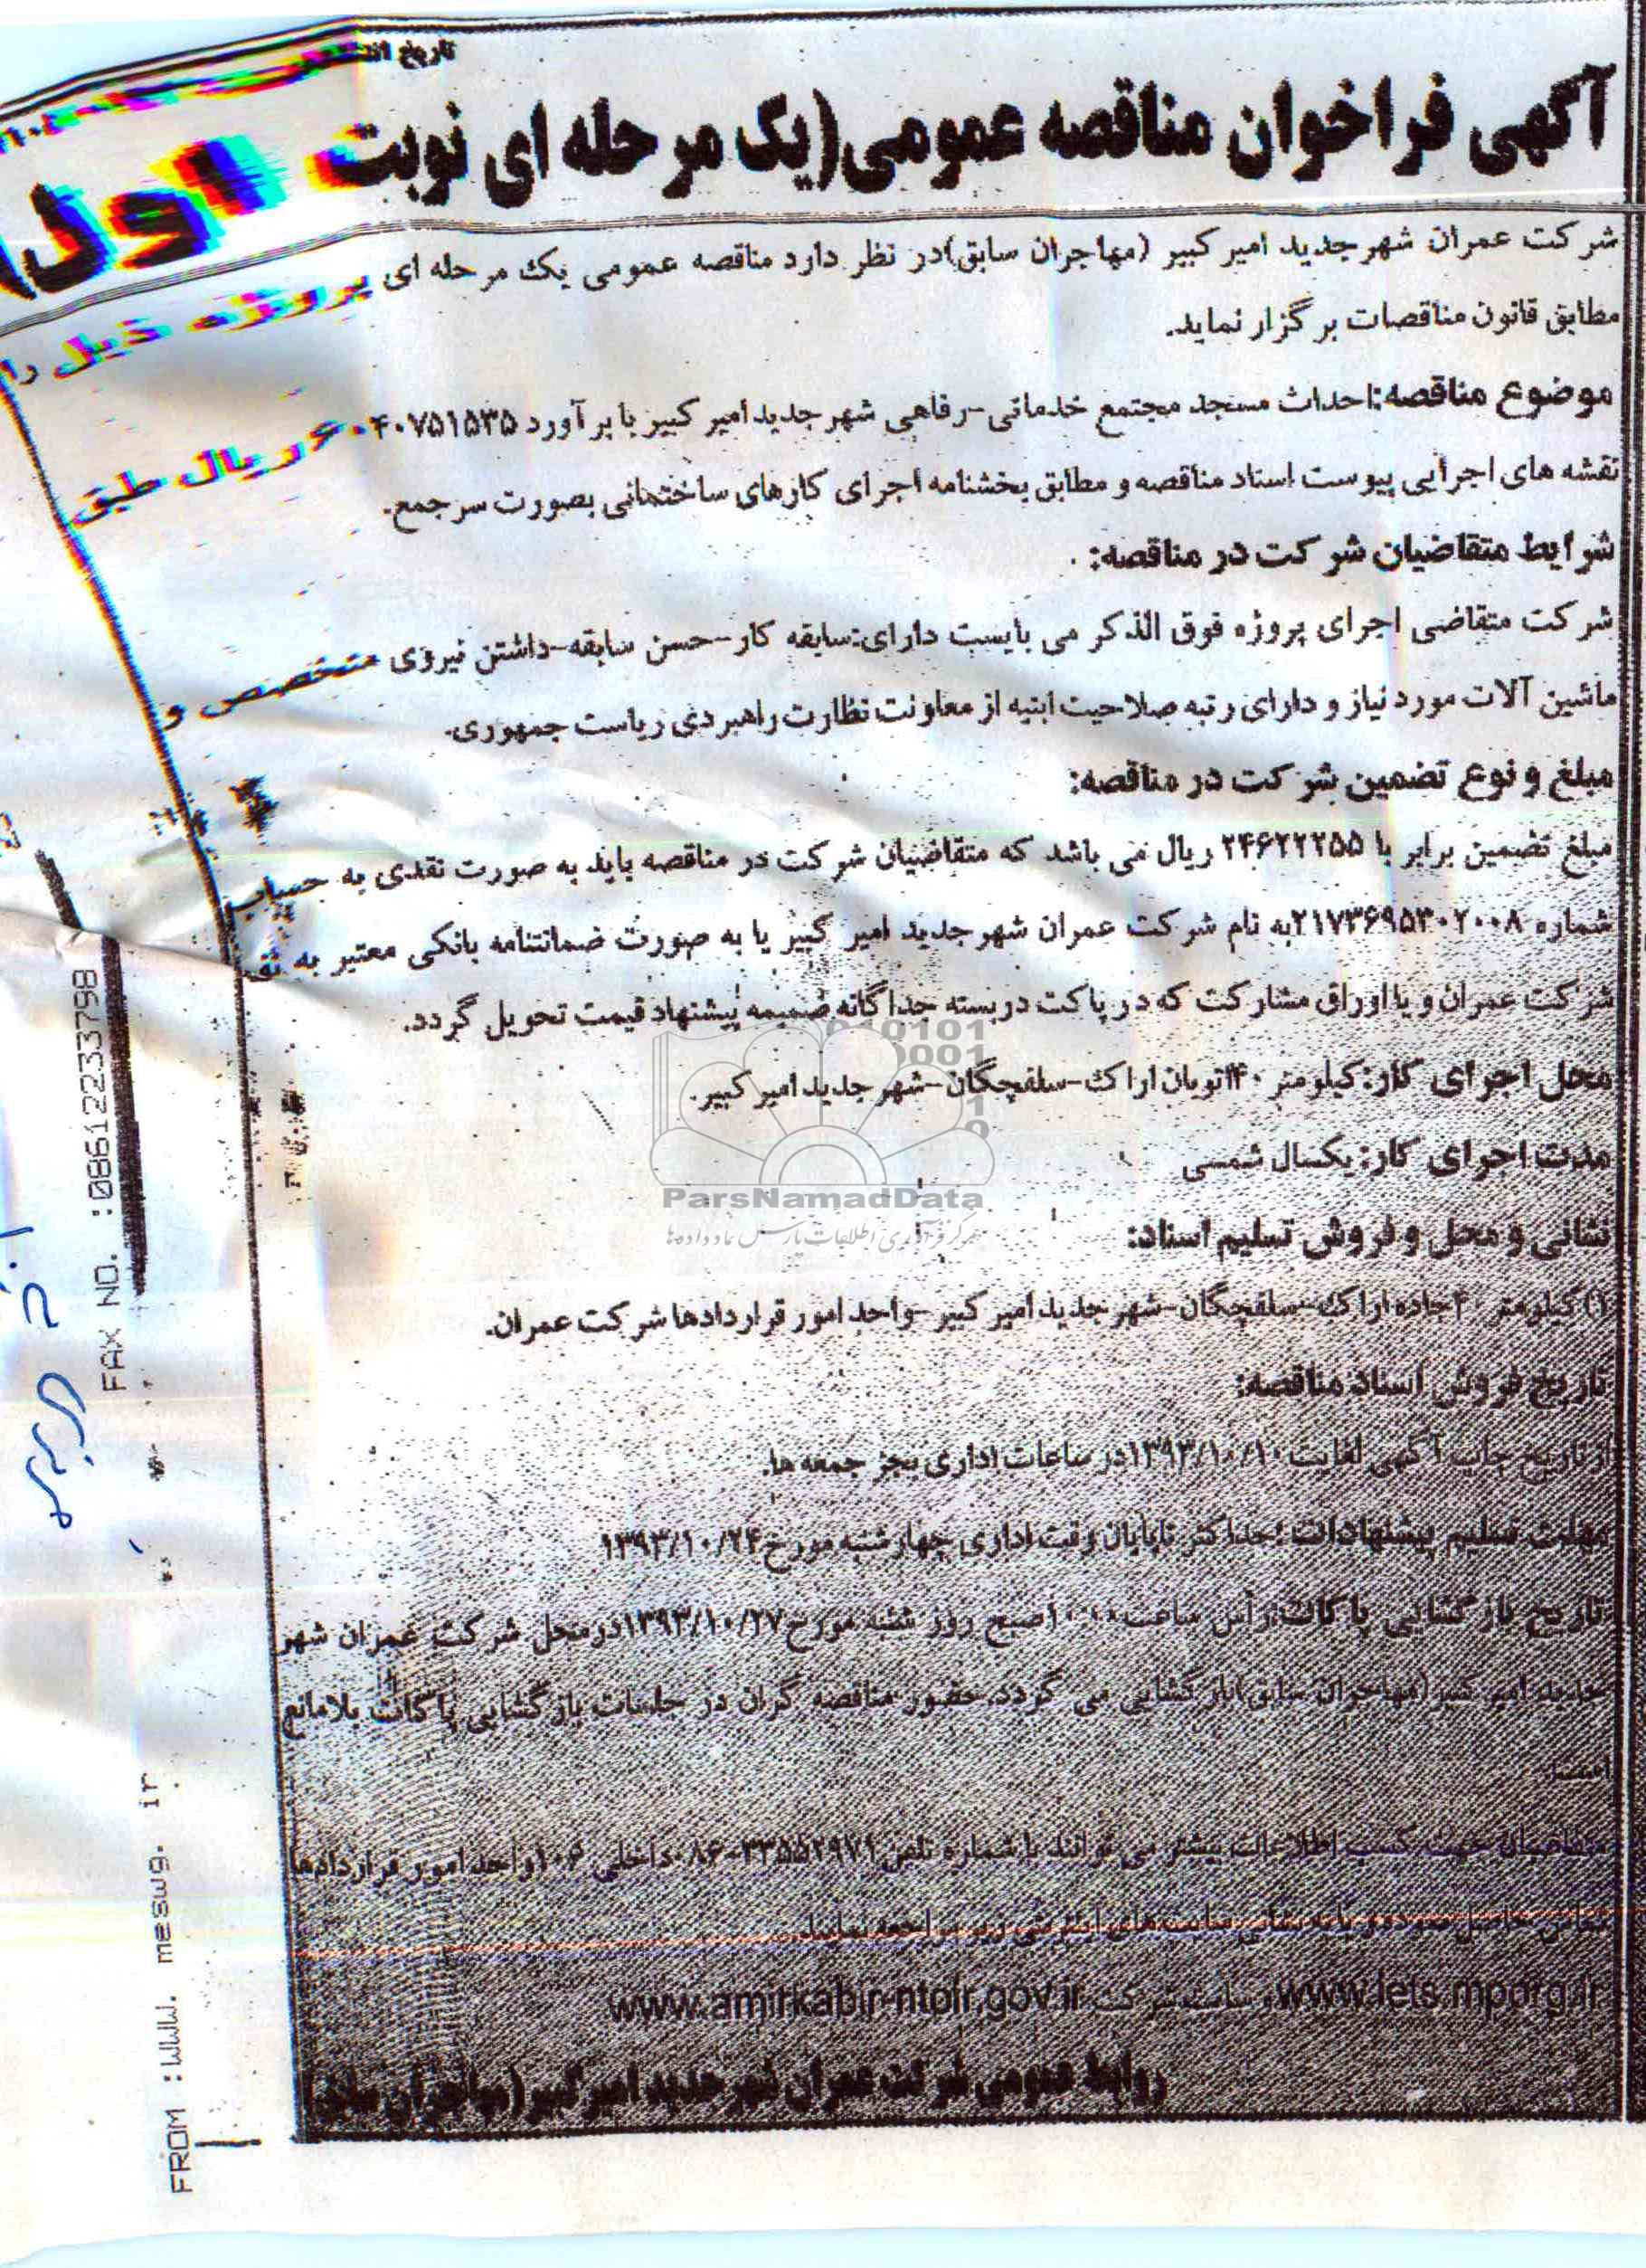 تاریخ
آگهی فراخوان مناقصه عمومی(یک مرحله ای نوبت اول)
شرکت عمران شهر جدید امیر کبیر (مهاجران سابق)در نظر دارد مناقصه عمومی یک مرحله ای پروژه ذیل را
مطابق قانون مناقصات برگزار نماید.
موضوع مناقصه:احداث مسجد مجتمع خدماتی-رفاهی شهر جدید امیر کبیر با برآورد ریال طبق
نقشه های اجرایی پیوست اسناد مناقصه و مطابق بخشنامه اجرای کارهای ساختمانی بصورت سرجمع.
شرایط متقاضیان شرکت در مناقصه:
شرکت متقاضی اجرای پروژه فوق الذکر می بایست دارای:سابقه کار-حسن سابقه-داشتن نیروی متخصص و
ماشین آلات مورد نیاز و دارای رتبه صلاحیت ابنیه از معاونت نظارت راهبردی ریاست جمهوری.
مبلغ و نوع تضمین شرکت در مناقصه:
مبلغ تضمین برابر با ریال می باشد که متقاضیان شرکت در مناقصه باید به صورت نقدی به حساب
شماره ۲۱۷۳۶۹۵۳۰۲۰۰۸به نام شرکت عمران شهر جدید امیر کبیر یا به صورت ضمانتنامه بانکی معتبر به
شرکت عمران و یا اوراق مشارکت که در پاکت دربسته جداگانه ضمیمه پیشنهاد قیمت تحویل گردد.
محل اجرای کار:کیلومتر اتوبان اراک-سلفچگان-شهر جدید امیر کبیر.
مدت اجرای کار:یکسال شمسی
ParsNamadData
مرکز فرآوری اطلاعات پارس نماد داده‌ها
نشانی و محل و فروش تسلیم اسناد:
۱)کیلومتر ۴۰جاده اراک-سلفچگان-شهر جدید امیر کبیر-واحد امور قراردادها شرکت عمران.
تاریخ فروش اسناد مناقصه:
از تاریخ چاپ آگهی لغایت ۱۳۹۳/۱۰/۱۰در ساعات اداری بجز جمعه ها.
مهلت تسلیم پیشنهادات:حداکثر تا پایان وقت اداری چهارشنبه مورخ ۱۳۹۳/۱۰/۲۴
تاریخ بازگشایی پاکات:رأس ساعت ۱۰:۰۰صبح روز شنبه مورخ ۱۳۹۳/۱۰/۲۷درمحل شرکت عمران شهر
جدید امیر کبیر(مهاجران سابق)بازگشایی می گردد.حضور مناقصه گران در جلسات بازگشایی پاکات بلامانع
است.
متقاضیان جهت کسب اطلاعات بیشتر می توانند با شماره تلفن ۳۳۵۵۲۹۷۱-۰۸۶ داخلی ۱۰۶واحد امور قراردادها
تماس حاصل نموده و یا به نشانی سایت های اینترنتی زیر مراجعه نمایند.
www.iets.mporg.ir و سایت شرکت www.amirkabir-ntoir.gov.ir
روابط عمومی شرکت عمران شهر جدید امیر کبیر(مهاجران سابق)
FROM :WWW. meswg. ir
FAX NO. :08612233798